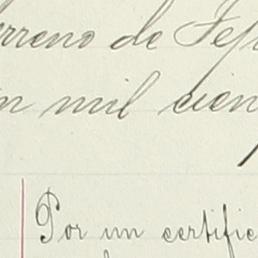 erreno de Tep
en mil cien
Por un certific